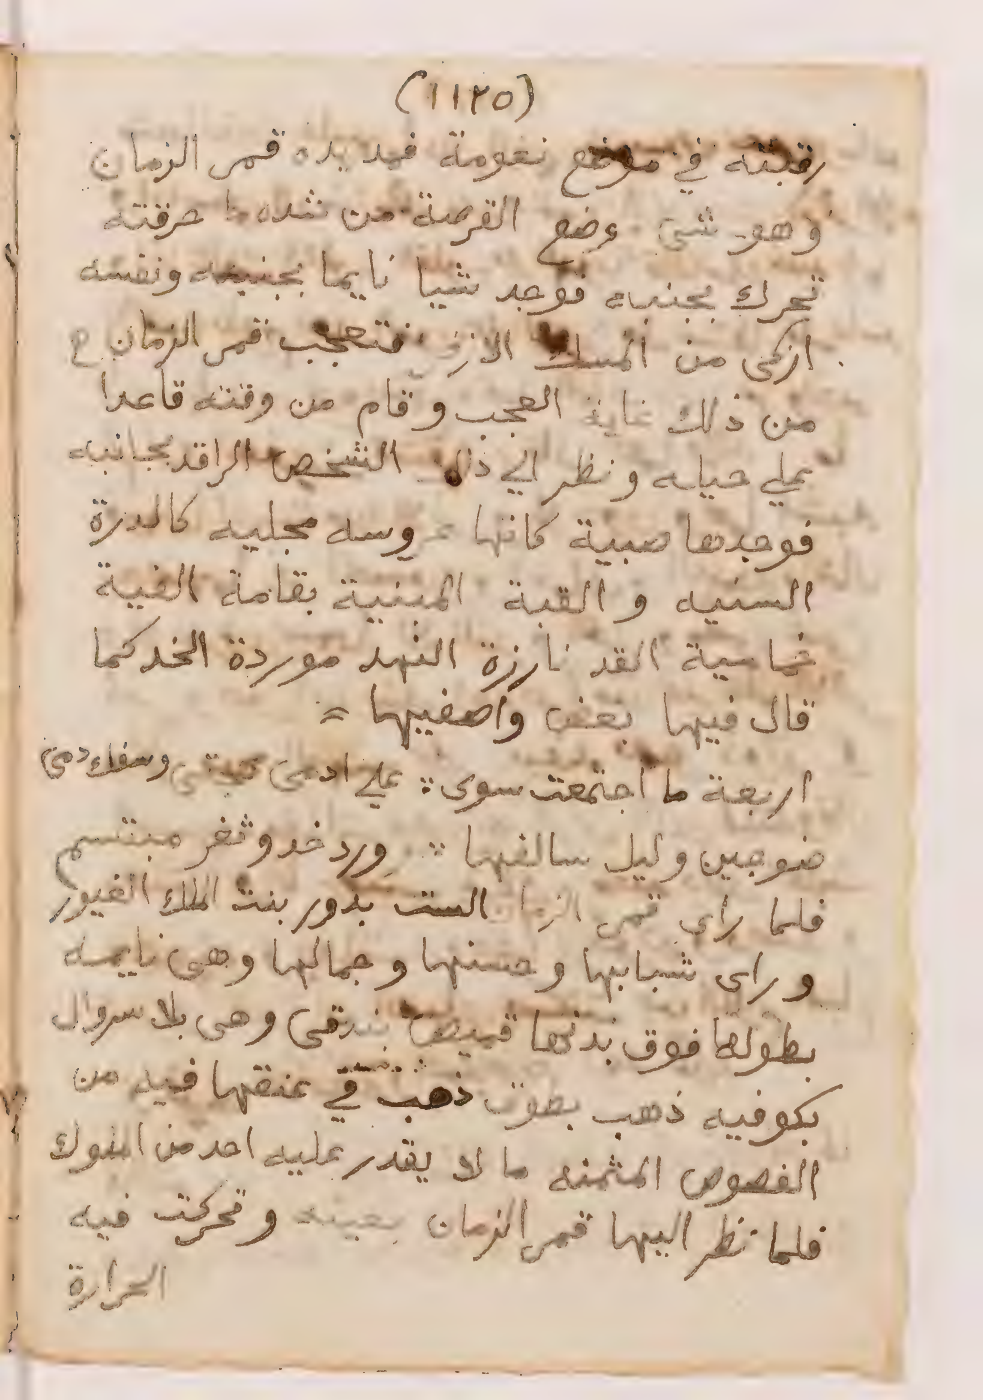 (١١٢٥)
رقبته في موضع نعومة فمد يده قمر الزمان
وهو شي وضع القرصة من شده ما حرقته
تحرك بجنبه فوجد شيا نايما بجنبه ونفسه
ازكى من المسك الازفر فتعجب قمر الزمان
من ذلك غاية العجب وقام من وقته قاعدا
على حيله ونظر الي ذلك الشخص الراقد بجانبه
فوجدها صبية كانها عروسه مجليه كالدرة
السنيه و القبة المبنية بقامة الفية
خماسية القد نارزة النهد موردة الخد كما
قال فيها بعض واصفيها =
اربعة ما اجتمعت سوى : على اد مهجتي وسفك دمي
ضوجبين وليل سالفها : ورد خد وثغر مبتسم
فلما راى قمر الزمان الست بدور بنت الملك الغيور
و راى شبابها وحسنها و جمالها وهى نايمه
بطولها فوق بدنها قميص بندقى وهى بلا سروال
بكوفيه ذهب بطوق ذهب في عنقها فيه من
الفصوص المثمنه ما لا يقدر عليه احد من الملوك
فلما نظر اليها قمر الزمان بعينه وتحركت فيه
الحرارة